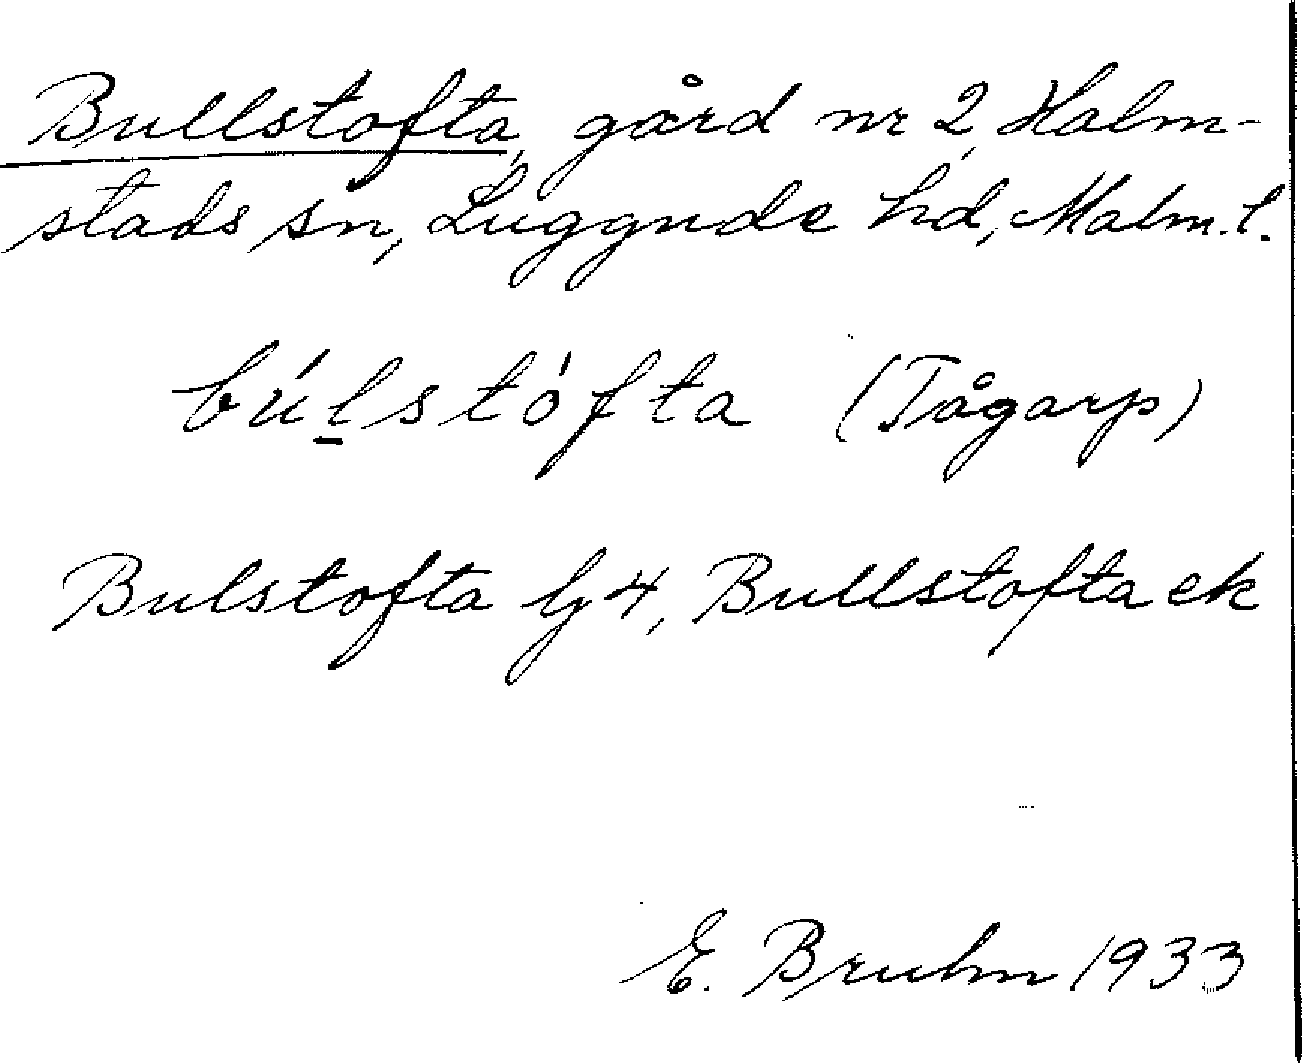 Bullstofta, gård nr 2, Halm-
stads sn, Luggude hd, Malm. l.
búl̠stófta (Tågarp)
Bulstofta lj 4, Bullstofta ek
E. Bruhn 1933